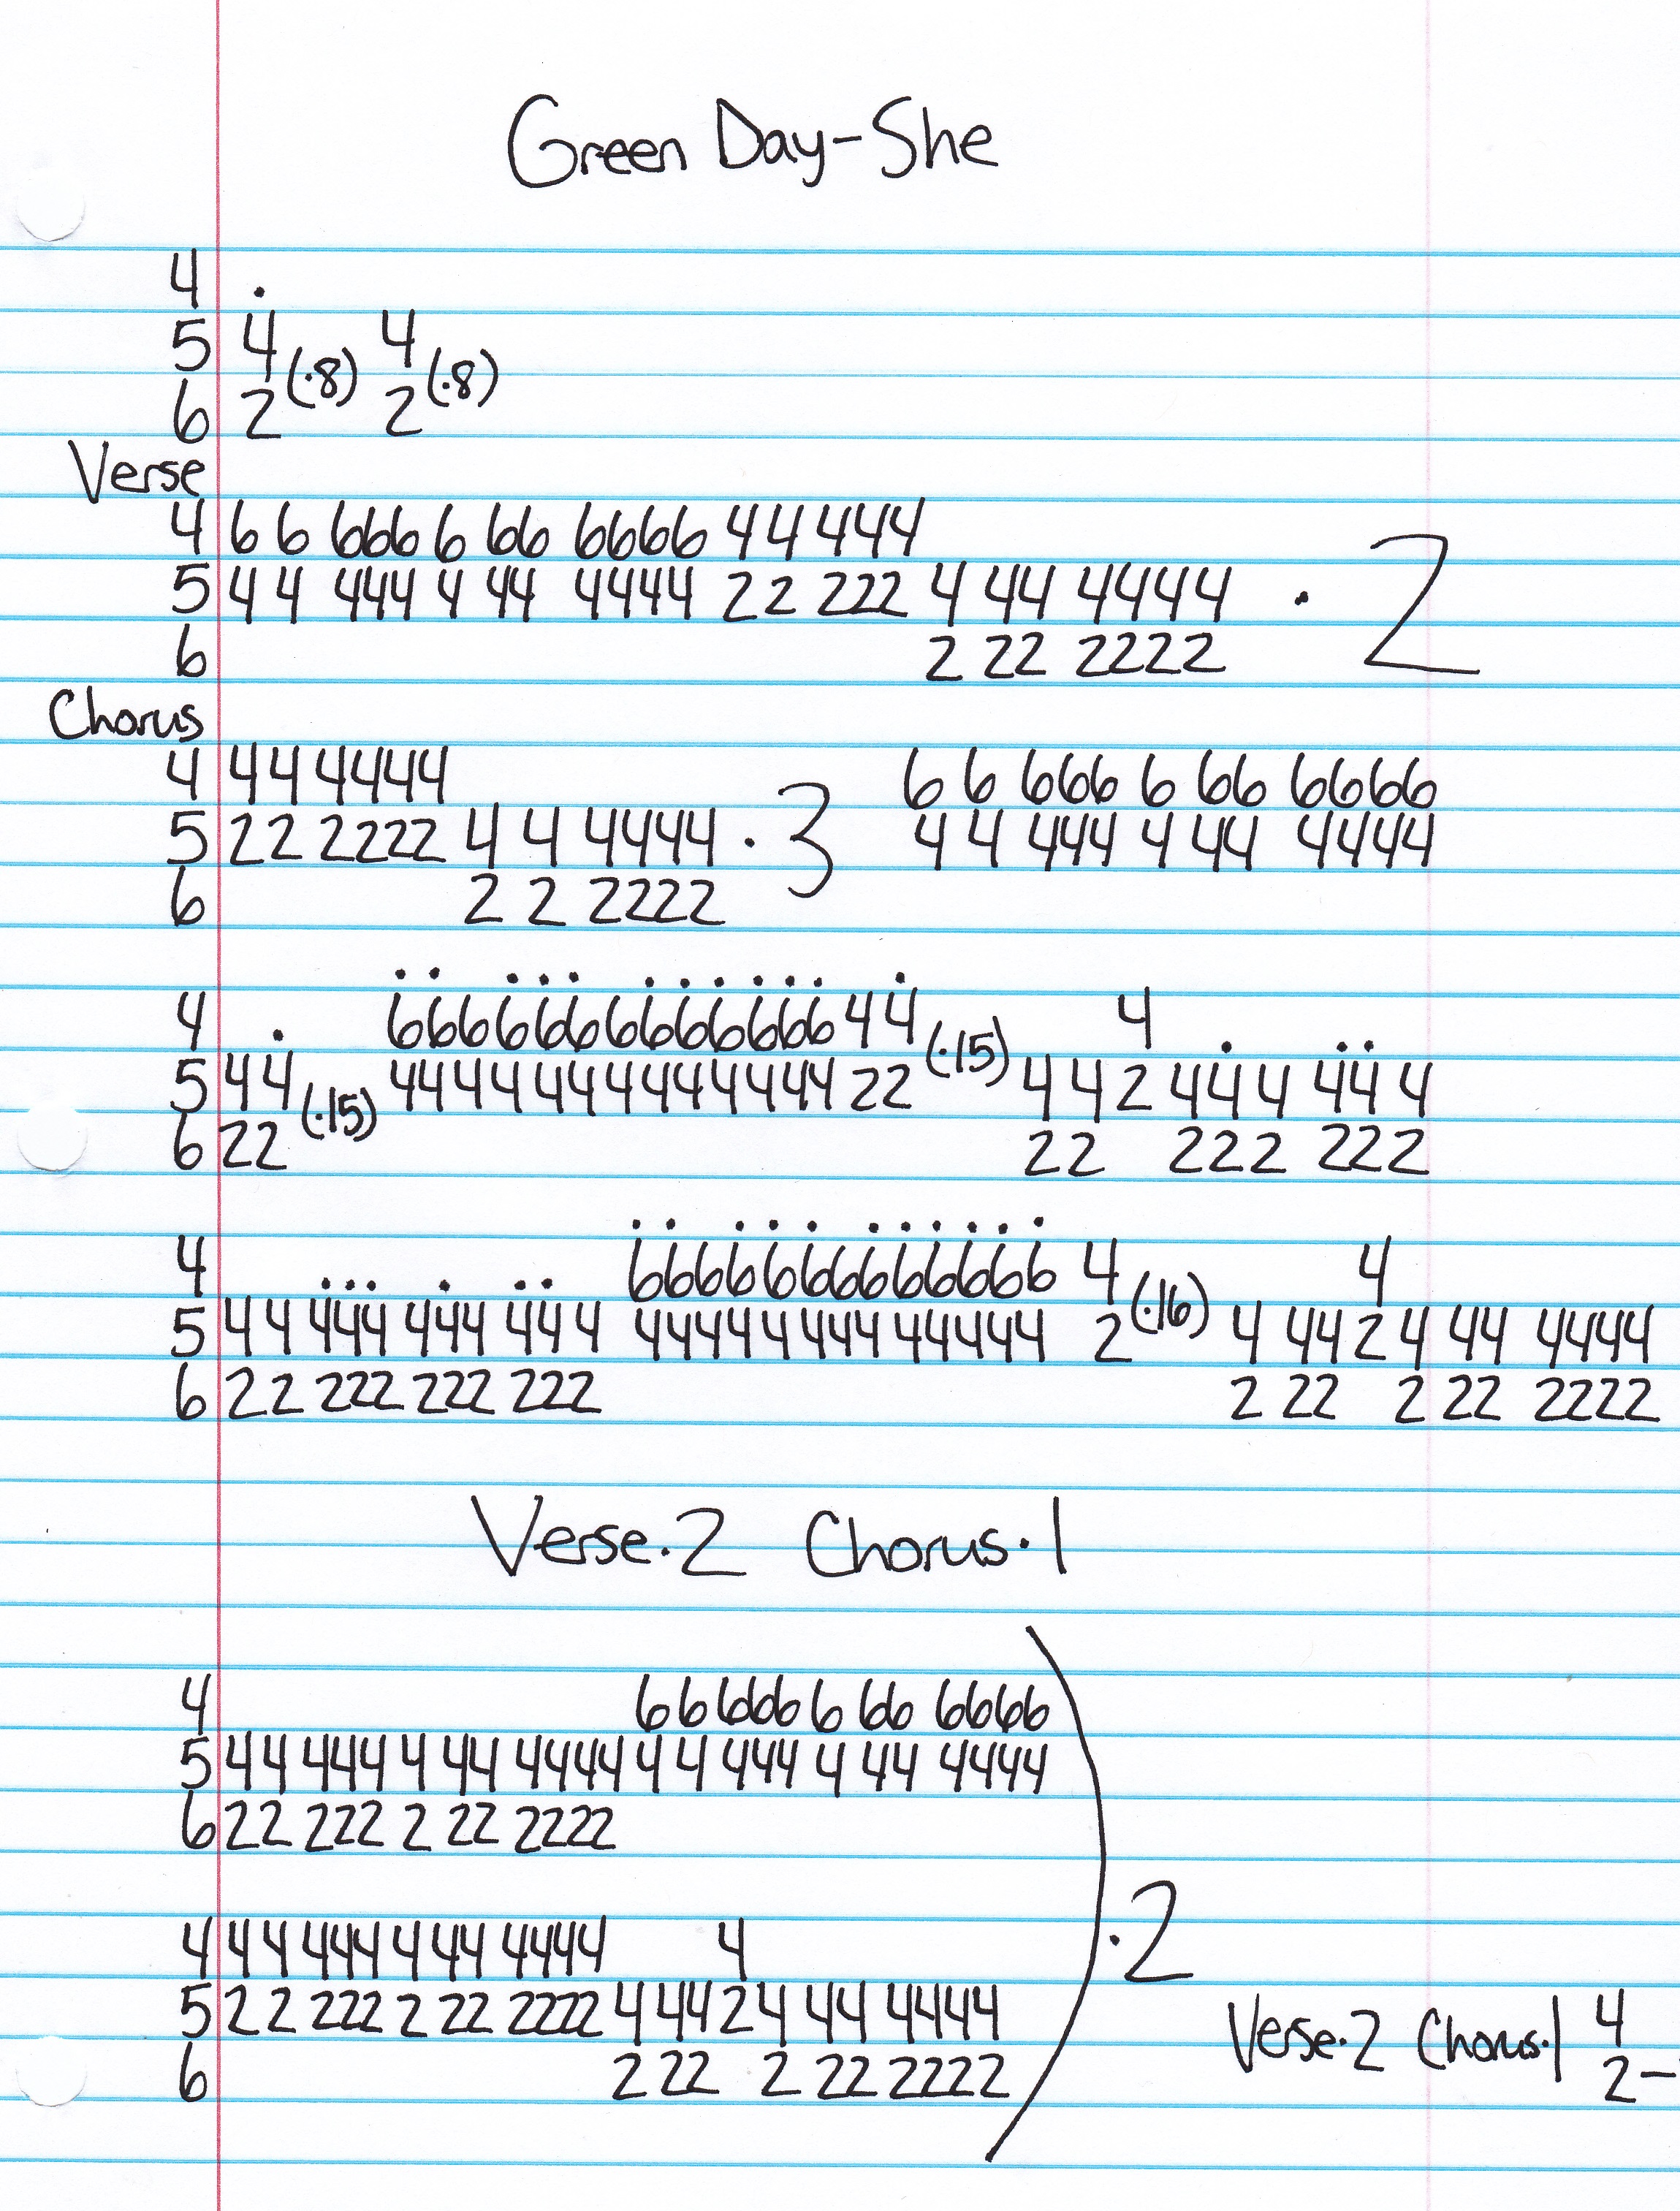 Green Day-She
4 .
5 4 (·8) 4 (·8)
6 2 2
Verse
4 6 6 666 6 66 6666 44 444
5 4 4 444 4 44 4444 22 222 4 44 4444 · 2
6 2 22 2222
Chorus
4 44 4444 6 6 666 6 66 6666
5 22 2222 4 4 4444 · 3 4 4 444 4 44 4444
6 2 2 2222
4 44 4
5 44 (·15) 22 (·15) 4 4 2 444 444
6 22 22 222 222
4 4 4
5 44 444 444 444 2 (·16) 4 44 2 4 44 4444
6 22 222 222 222 2 22 2 22 2222
Verse·2 Chorus·1
4 66 666 6 66 6666
5 44 444 4 44 4444 4 4 444 4 44 4444
6 22 222 2 22 2222
· 2
4 44 444 4 44 4444 4
5 22 222 2 22 2222 4 44 2 4 44 4444
6 2 22 2 22 2222
Verse·2 Chorus·1 4
2–